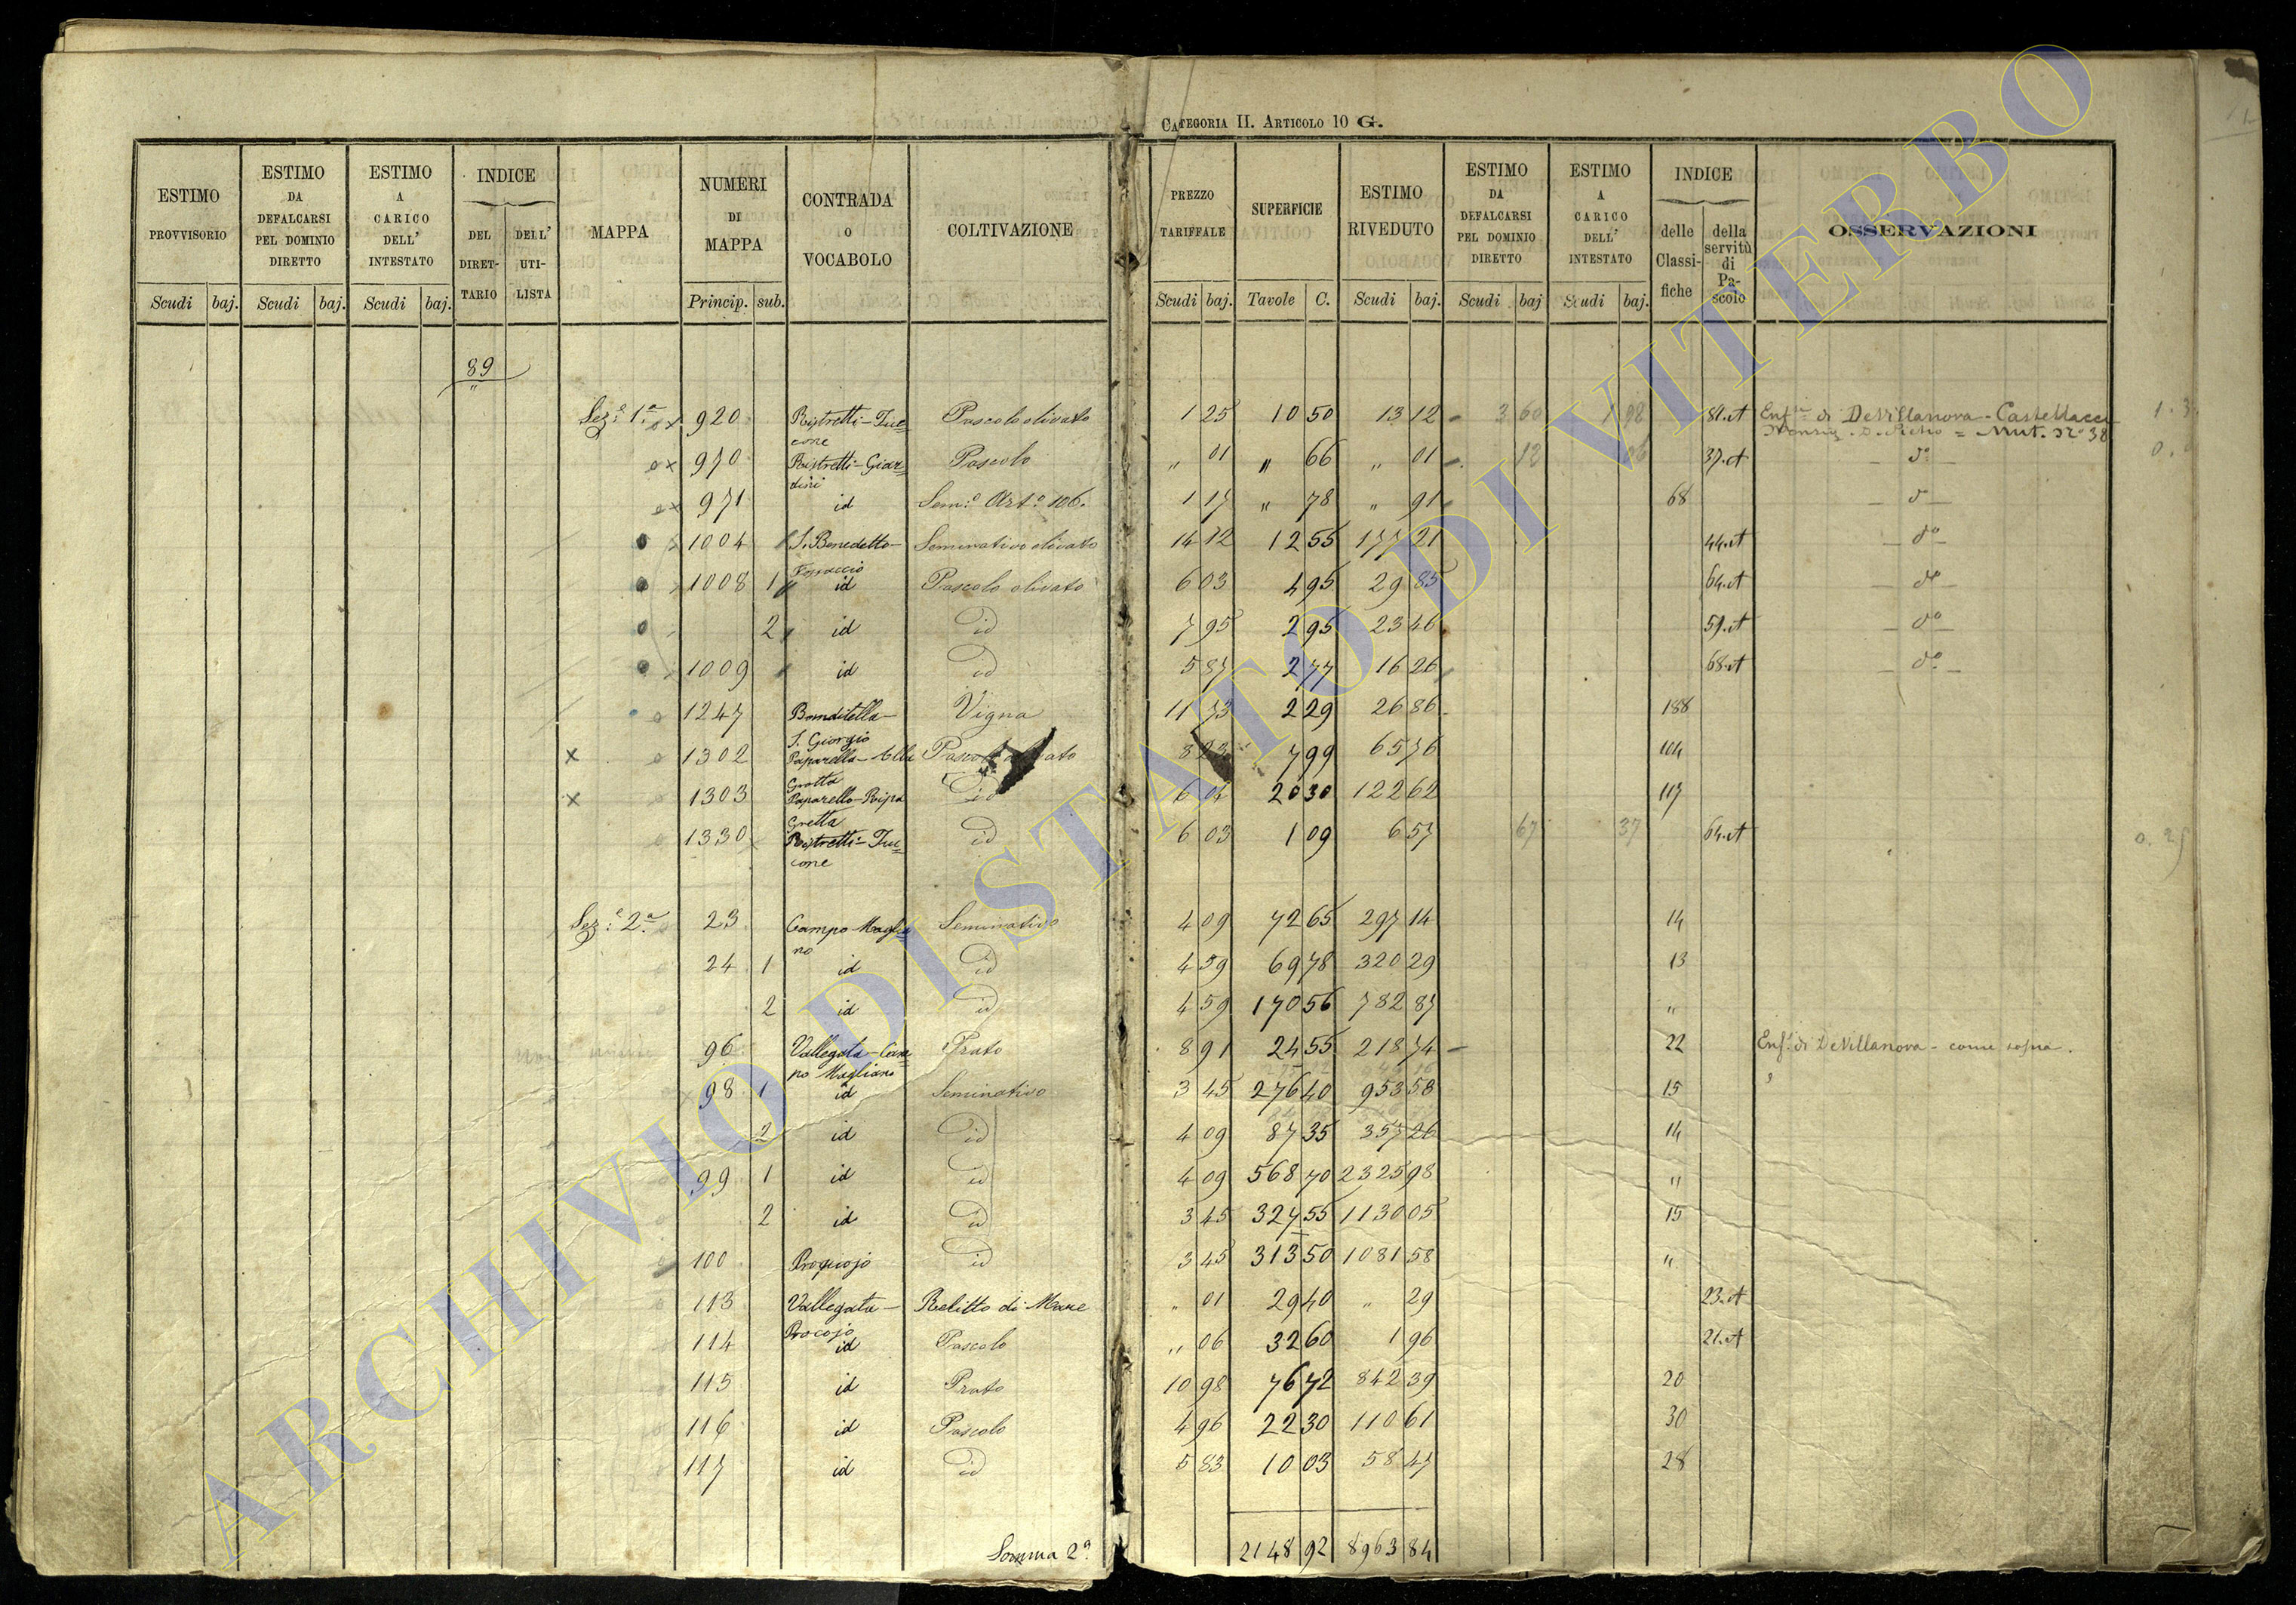 CATEGORIA II. ARTICOLO 10 G.
ESTIMO PROVVISORIO Scudi baj.
ESTIMO DA DEFALCARSI PEL DOMINIO DIRETTO Scudi baj.
ESTIMO A CARICO DELL' INTESTATO Scudi baj.
INDICE DEL DIRET-TARIO DELL' UTI-LISTA
MAPPA
NUMERI DI MAPPA Princip. sub.
CONTRADA O VOCABOLO
COLTIVAZIONE
PREZZO TARIFFALE Scudi baj.
SUPERFICIE Tavole C.
ESTIMO RIVEDUTO Scudi baj.
ESTIMO DA DEFALCARSI PEL DOMINIO DIRETTO Scudi baj
ESTIMO A CARICO DELL' INTESTATO Scudi baj.
INDICE delle Classi-fiche della servitù di Pa-scolo
OSSERVAZIONI
89
"
Sez:e 1a 920 Ristretti-Tuc= Pascolo olivato 1 25 10 50 13 12 3 60 1 98 81.A Enfa di DeVillanova-Castellacci
cone Monsig. D. Pietro = Mut. No 38
970 Ristretti-Giar= Pascolo " 01 " 66 " 01 12 06 37.A do
dini
971 id Sem:o Art:o 106. 1 17 " 78 " 91 68 do
1004 S. Benedetto- Seminativo olivato 14 12 12 55 177 21 44.A do
Fossaccio
1008 1 id Pascolo olivato 6 03 4 95 29 85 64.A do
2 id id 7 95 2 95 23 46 59.A do
1009 id id 5 87 2 77 16 26 68.A do
1247 Banditella- Vigna 11 73 2 29 26 86 188
S. Giorgio
x 1302 Paparella-Alla 8 23 7 99 65 76 104
Grotta
x 1303 Paparello-Ripa id 6 04 20 30 122 62 117
Gretta
1330 Ristretti-Tuc= id 6 03 1 09 6 57 67 37 64.A
cone
Sez:e 2a 23 Campo Maglia Seminativo 4 09 72 65 297 14 14
no
24 1 id id 4 59 69 78 320 29 13
2 id id 4 59 170 56 782 87 "
96 Vallegata-Cam= Prato 8 91 24 55 218 74 22 Enfa di DeVillanova - come sopra.
po Magliano
98 1 id Seminativo 3 45 276 40 953 58 15
2 id id 4 09 87 35 357 26 14
99 1 id id 4 09 568 70 2325 98 "
2 id id 3 45 327 55 1130 05 15
100 Proquojo id 3 45 313 50 1081 58 "
113 Vallegata- Relitto di Mare " 01 29 40 " 29 23.A
Procojo
114 id Pascolo " 06 32 60 1 96 21.A
115 id Prato 10 98 76 72 842 39 20
116 id Pascolo 4 96 22 30 110 61 30
117 id id 5 83 10 03 58 47 28
Somma 2a 2148 92 8963 84
ARCHIVIO DI STATO DI VITERBO